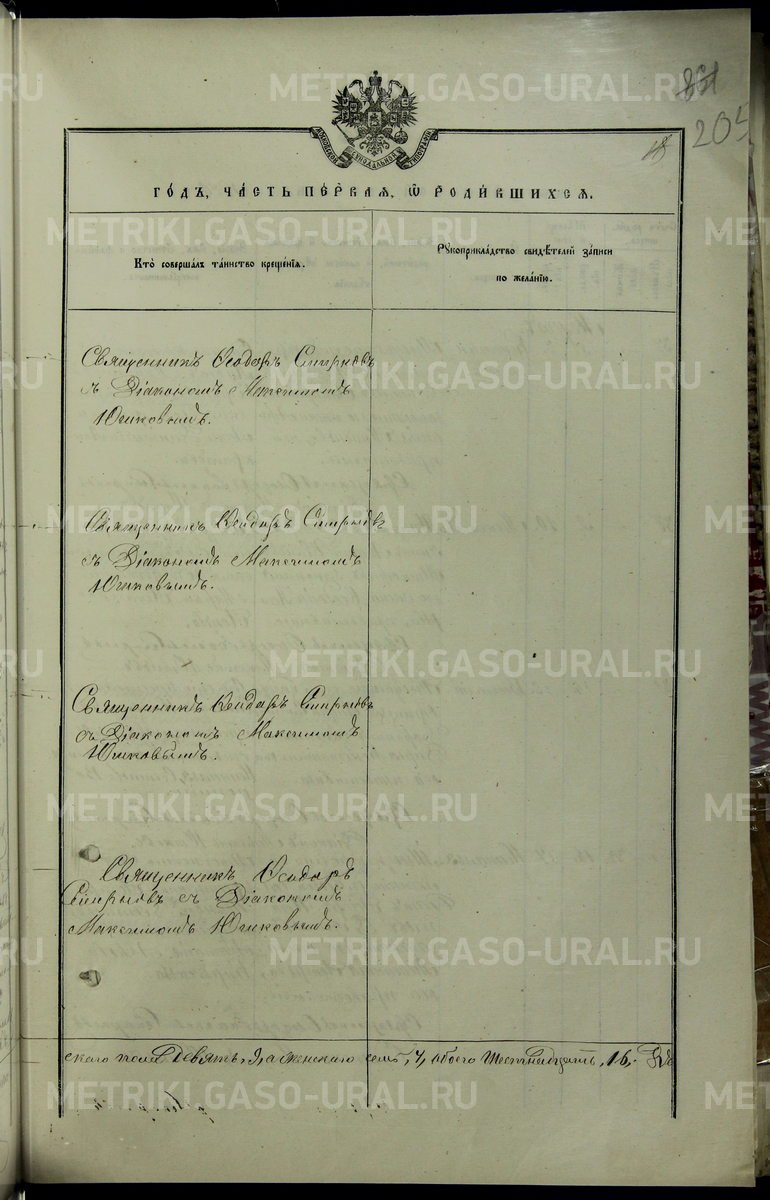 METRIKI.GASO-URAL.RU
205
18
МОСКОВСКОЙ СѴНОДАЛЬНОЙ ТИПОГРАФІИ
ГО́ДЪ, ЧА́СТЬ ПЕ́РВАЯ, Ѡ РОДИ́ВШИХСЯ.
Кто̀ соверша́лъ та́инство креще́нія.
Рꙋкоприкла́дство свидѣ́телей за́писи
по жела́нію.
Священникъ Ѳеодоръ Смирновъ
съ Діакономъ Максимомъ
Юшковымъ.
Священникъ Ѳеодоръ Смирновъ
съ Діакономъ Максимомъ
Юшковымъ.
Священникъ Ѳеодоръ Смирновъ
съ Діакономъ Максимомъ
Юшковымъ.
Священникъ Ѳеодоръ
Смирновъ съ Діакономъ
Максимомъ Юшковымъ.
скаго пола девять, 9, а женскаго семь, 7, обоего шестнадцать, 16,